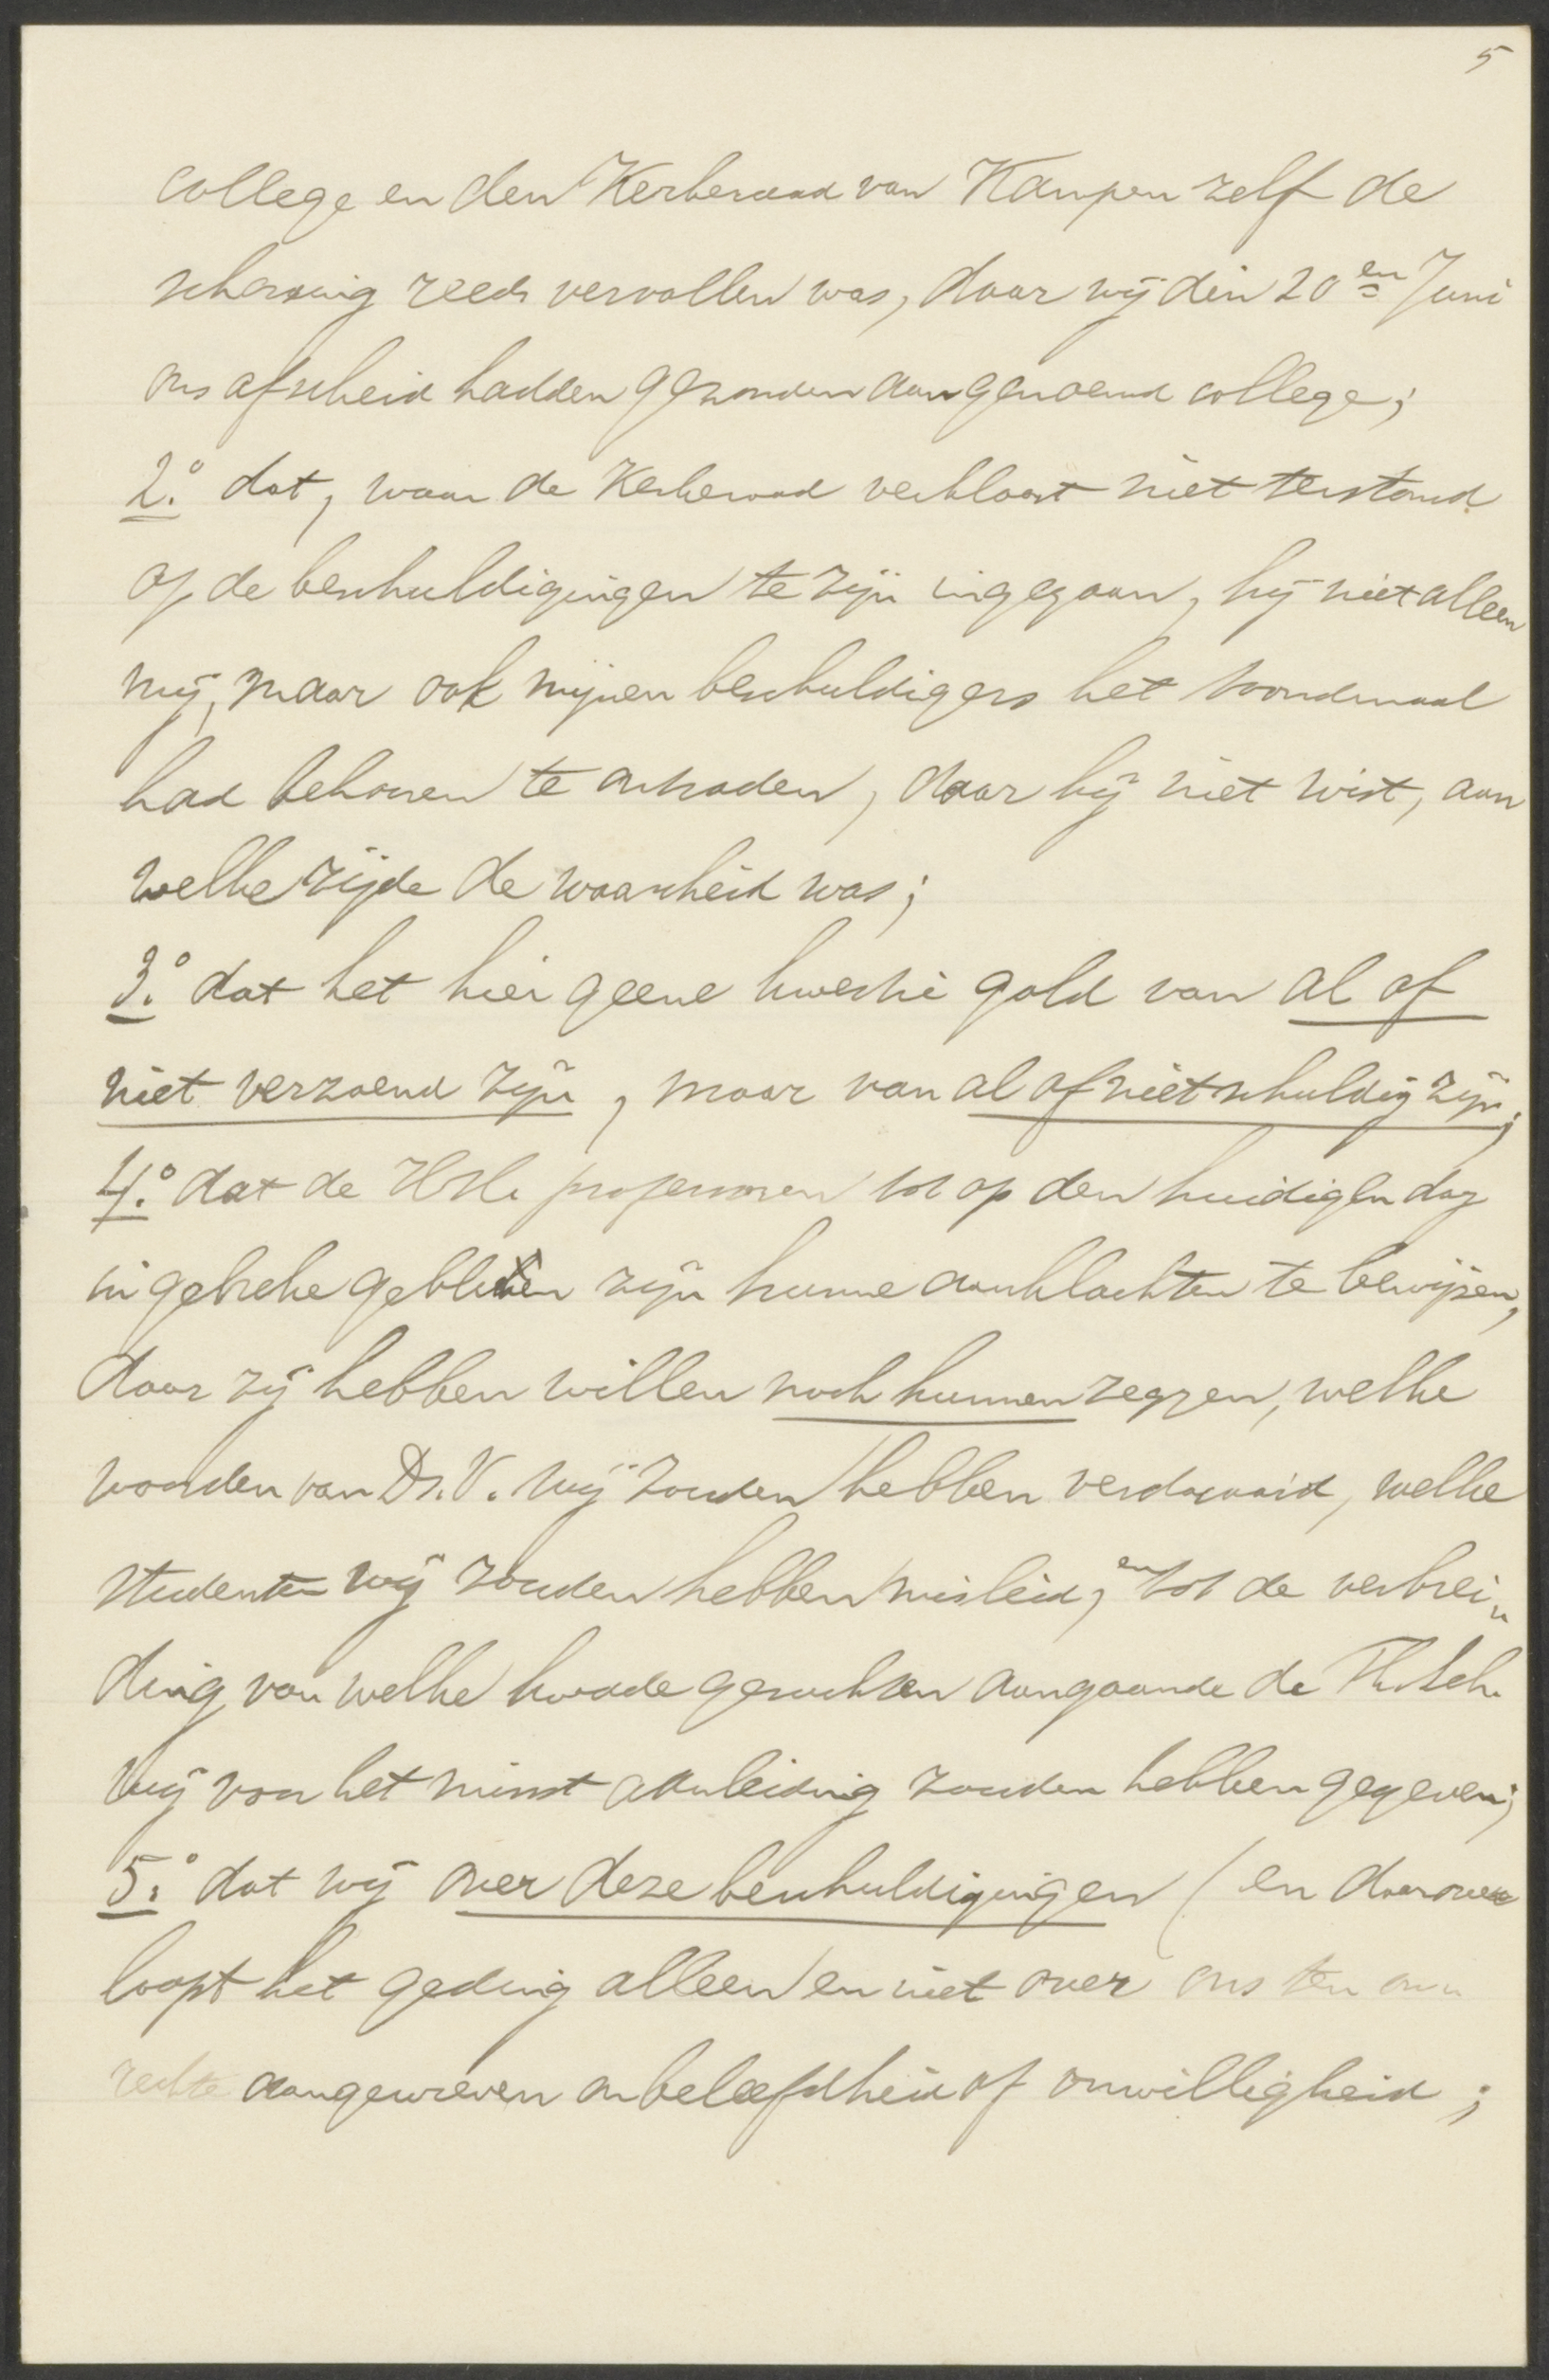 5
college en den Kerkeraad van Kampen zelf de
schorsing reeds vervallen was, daar wij den 20en Juni
ons afscheid hadden gezonden aan genoemd college;
2.° dat, waar de Kerkeraad verklaart niet terstond
op de beschuldigingen te zijn ingegaan, hij niet alleen
mij, maar ook mijnen beschuldigers het avondmaal
had behooren te ontraden, daar hij niet wist, aan
welke zijde de waarheid was;
3.° dat het hier geene kwestie gold van al of
niet verzoend zijn, maar van al of niet schuldig zijn;
4.° dat de professoren tot op den huidigen dag
in gebreke gebleven zijn hunne aanklachten te bewijzen,
daar zij hebben willen noch kunnen zeggen, welke
woorden van Ds. V. wij zouden hebben verdraaid, welke
studenten wij zouden hebben misleid, en tot de verbrei„
ding van welke kwade geruchten aangaande de Th. Sch.
wij voor het minst aanleiding zouden hebben gegeven;
5.° dat wij over deze beschuldigingen (en daarover
loopt het geding alleen en niet over ons ten on„
rechte aangewreven onbeleefdheid of onwilligheid;